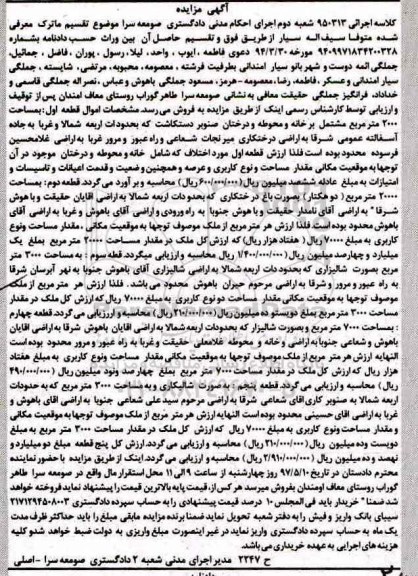 آگهی مزایده
کلاسه اجرائی ۹۵۰۳۱۳ شعبه دوم اجرای احکام مدنی دادگستری صومعه سرا موضوع تقسیم ماترک معرفی
شده متوفا سیف اله سیار از طریق فوق و تقسیم حاصل آن بین وراث حسب دادنامه بشماره
۹۴۰۹۹۷۱۸۳۴۲۰۰۳۲۸ مورخه ۹۴/۳/۳۰ دعوی فاطمه ، ایوب ، واحد، لیلا، رسول ، پوران ، فاضل ، جمائیل،
جملگی ائمه دوست و شهر بانو سیار امندانی بطرفیت فرشته ، معصومه، محبوبه، مرتضی، شایسته ، جملگی
سیار امندانی و عسکر ، فاطمه، رضا، معصومه – هرمز، مسعود جملگی باهوش و عباس، نصراله جملگی قاسمی و
خداداد، فرانگیز جملگی حقیقت معافی به نشانی صومعه سرا طاهر گوراب روستای معاف امندان پس از توقیف
و ارزیابی توسط کارشناس رسمی اینک از طریق مزایده به فروش می رسد. مشخصات اموال قطعه اول: بمساحت
۲۰۰۰ متر مربع مشتمل بر خانه و محوطه و درختان صنوبر دستکاشت که بحدودات اربعه شمالا و غربا به جاده
آسفالته عمومی شرقا به اراضی درختکاری میر نجات شعاعی و راه عبور و مرور غربا به اراضی غلامحسین
فرسوده محدود بوده است فلذا ارزش قطعه اول مورد اختلاف که شامل خانه و محوطه و درختان موجود در آن
توجها به موقعیت مکانی مقدار مساحت و نوع کاربری و عرصه و همچنین وضعیت و قدمت اعیانات و تاسیسات و
امتیازات به مبلغ عادله ششصد میلیون ریال (۶۰۰/۰۰۰/۰۰۰ ریال) محاسبه و بر آورد می گردد. قطعه دوم: بمساحت
۲۰۰۰۰ متر مربع ( دو هکتار ) بصورت باغ درختکاری که بحدودات اربعه شمالا به اراضی اقایان حقیقت و باهوش
شرقا " به اراضی آقای نامدار حقیقت و باهوش جنوبا به راه ورودی و اراضی آقای باهوش و غربا به اراضی آقای
باهوش محدود بوده است. فلذا ارزش هر متر مربع از ملک موصوف توجها به موقعیت مکانی ، مقدار مساحت ونوع
کاربری به مبلغ ۷۰۰۰۰ ریال ( هفتاد هزار ریال) که ارزش کل ملک در مقدار مساحت ۲۰۰۰۰ متر مربع بمبلغ یک
میلیارد و چهارصد میلیون ریال ۱/۴۰۰/۰۰۰/۰۰۰ ریال محاسبه و ارزیابی میگردد قطعه سوم : به مساحت ۳۰۰۰ متر
مربع بصورت شالیزاری که بحدودات اربعه شمالا به اراضی شالیزاری آقای باهوش جنوبا به نهر آبرسان شرقا
به راه عبور و مرور و شرقا به اراضی مرحوم حیران باهوش محدود می باشد. فلذا ارزش هر متر مربع از ملک
موصوف توجها به موقعیت مکانی مقدار مساحت دو نوع کاربری به مبلغ ۷۰۰۰۰ ریال که ارزش کل ملک در مقدار
مساحت ۳۰۰۰ متر مربع به مبلغ دویست و ده میلیون ریال (۲۱۰/۰۰۰/۰۰۰ ریال) محاسبه و ارزیابی می گردد. قطعه چهارم
: بمساحت ۷۰۰۰ متر مربع و بصورت شالیزار که بحدودات اربعه شمالا به اراضی اقایان باهوش شرقا به اراضی اقایان
باهوش و شعاعی جنوبا به اراضی و خانه و محوطه غلامعلی حقیقت و غربا به راه عبور و مرور محدود بوده است
النهایه ارزش هر متر مربع از ملک موصوف توجها به موقعیت مکانی مقدار مساحت ونوع کاربری به مبلغ هفتاد
هزار ریال که ارزش کل ملک در مقدار مساحت ۷۰۰۰ متر مربع بمبلغ چهارصد ونود میلیون ریال (۴۹۰/۰۰۰/۰۰۰
ریال) محاسبه و ارزیابی می گردد. قطعه پنجم موسوم به شالیکاری و به مساحت ۳۰۰۰ متر مربع که به حدودات
اربعه شمالا به صنوبر کاری اقای شعاعی شرقا به اراضی مرحوم سید علی شعاعی جنوبا به اراضی اقای باهوش و
غربا به اراضی اقای حسینی محدود بوده است النهایه ارزش هر متر مربع از ملک موصوف توجها به موقعیت مکانی
و مقدار مساحت ونوع کاربری به مبلغ ۷۰۰۰۰ ریال که ارزش کل ملک در مقدار مساحت ۳۰۰۰ متر مربع به مبلغ
دویست وده میلیون ریال (۲۱۰/۰۰۰/۰۰۰ ریال) محاسبه و ارزیابی می گردد. ارزش کل پنج قطعه مبلغ دو میلیارد و
نهصد و ده میلیون ریال (۲/۹۱۰/۰۰۰/۰۰۰ ریال ) محاسبه و ارزیابی می گردد. اینک از طریق مزایده با حضور نماینده
محترم دادستان در تاریخ ۹۷/۵/۱۰ روز چهارشنبه از ساعت ۹ الی ۱۱ محل استقرار مال واقع در صومعه سرا طاهر
گوراب روستای معاف اومندان بفروش میرسد هر کس از قیمت پایه بالاترین قیمت را پیشنهاد نماید فروخته خواهد
شد ضمنا " خریدار باید فی المجلس ۱۰ درصد قیمت پیشنهادی را به حساب سپرده دادگستری ۲۱۷۱۲۹۴۵۰۸۰۰۳
سیبای بانک واریز و فیش را به دفتر شعبه تحویل نماید ضمنا برنده مزایده مابقی مبلغ را باید حداکثر ظرف مدت
یک ماه به حساب سپرده دادگستری واریز نماید در غیر اینصورت مبلغ واریزی به دولت ضبط خواهد شد و کلیه
هزینه های اجرایی به عهده خریداری می باشد.
ح ۲۲۴۷ مدیر اجرای مدنی شعبه ۲ دادگستری صومعه سرا – اصلی